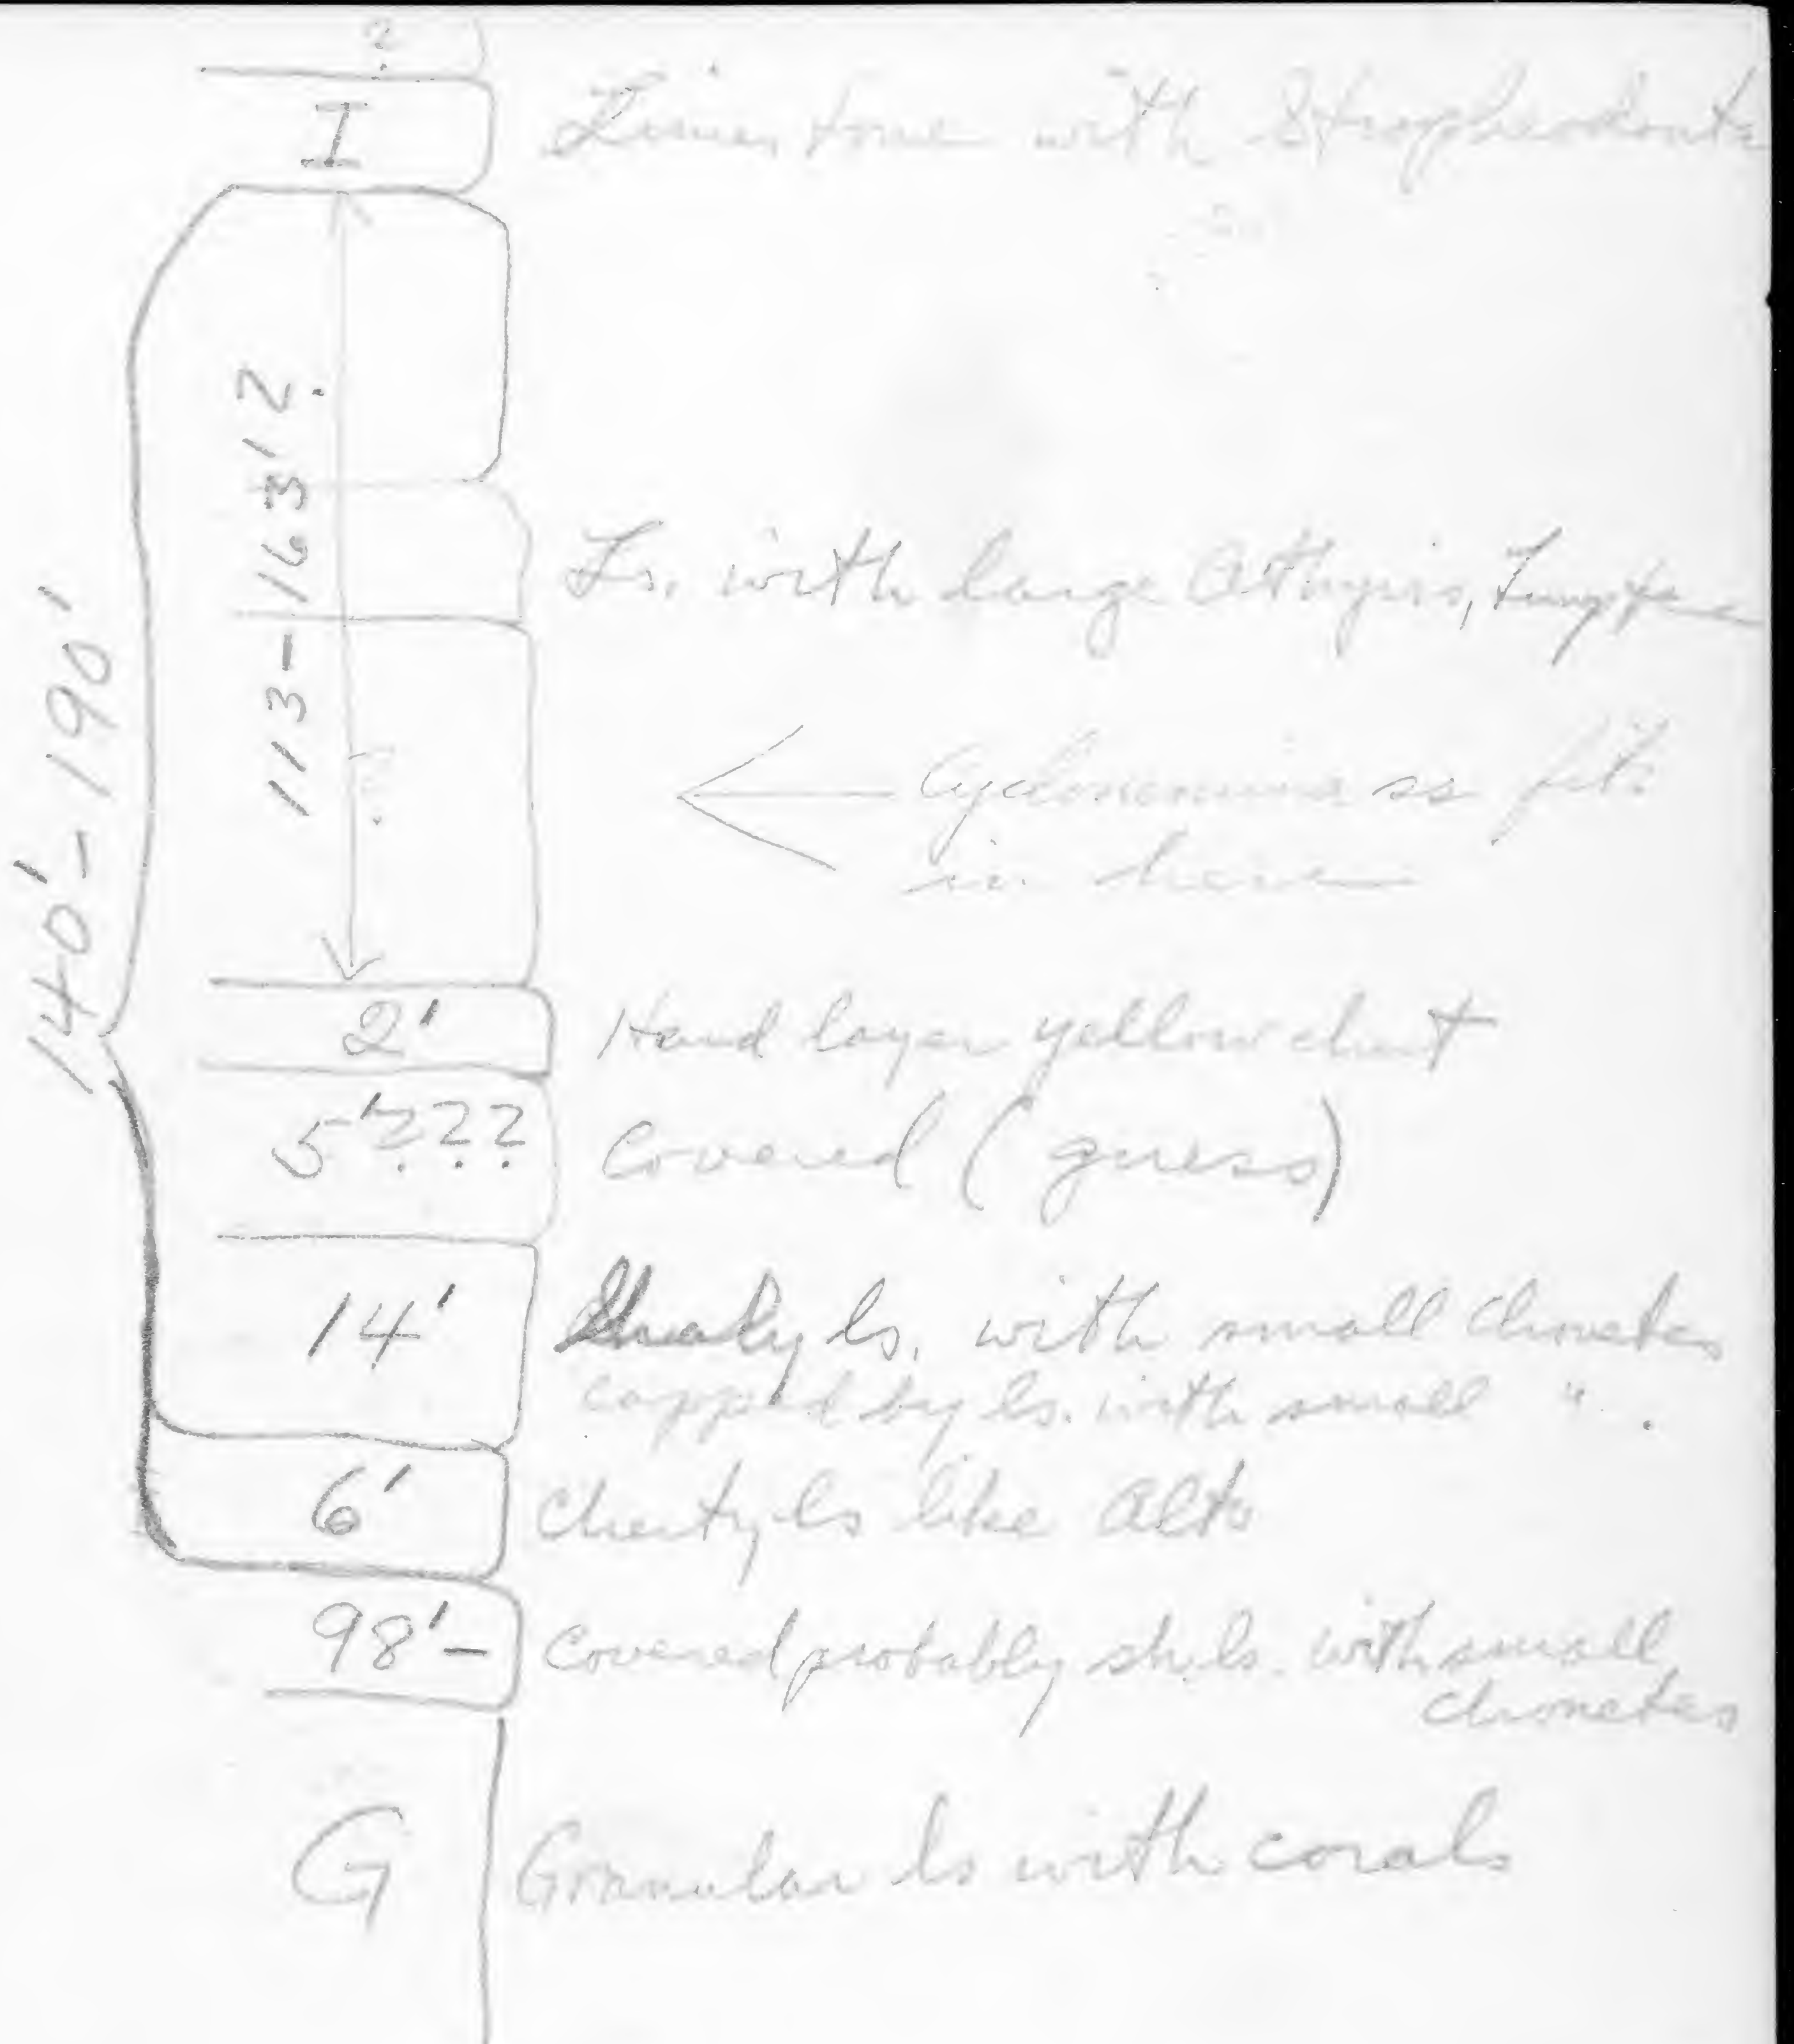 ?
I Limestone with Stropheodonta
140'-190'
113-163'?
Ls. with large Athyris,
?
Cyclonemina ss fits
in here
2' Hard layer yellow chert
5'??? Covered (guess)
14' Shaly ls. with small Chonetes
capped by ls. with small " .
6' Cherty ls like Alto
98'- Covered probably sh. ls. with small
chonetes
G Granular ls with corals